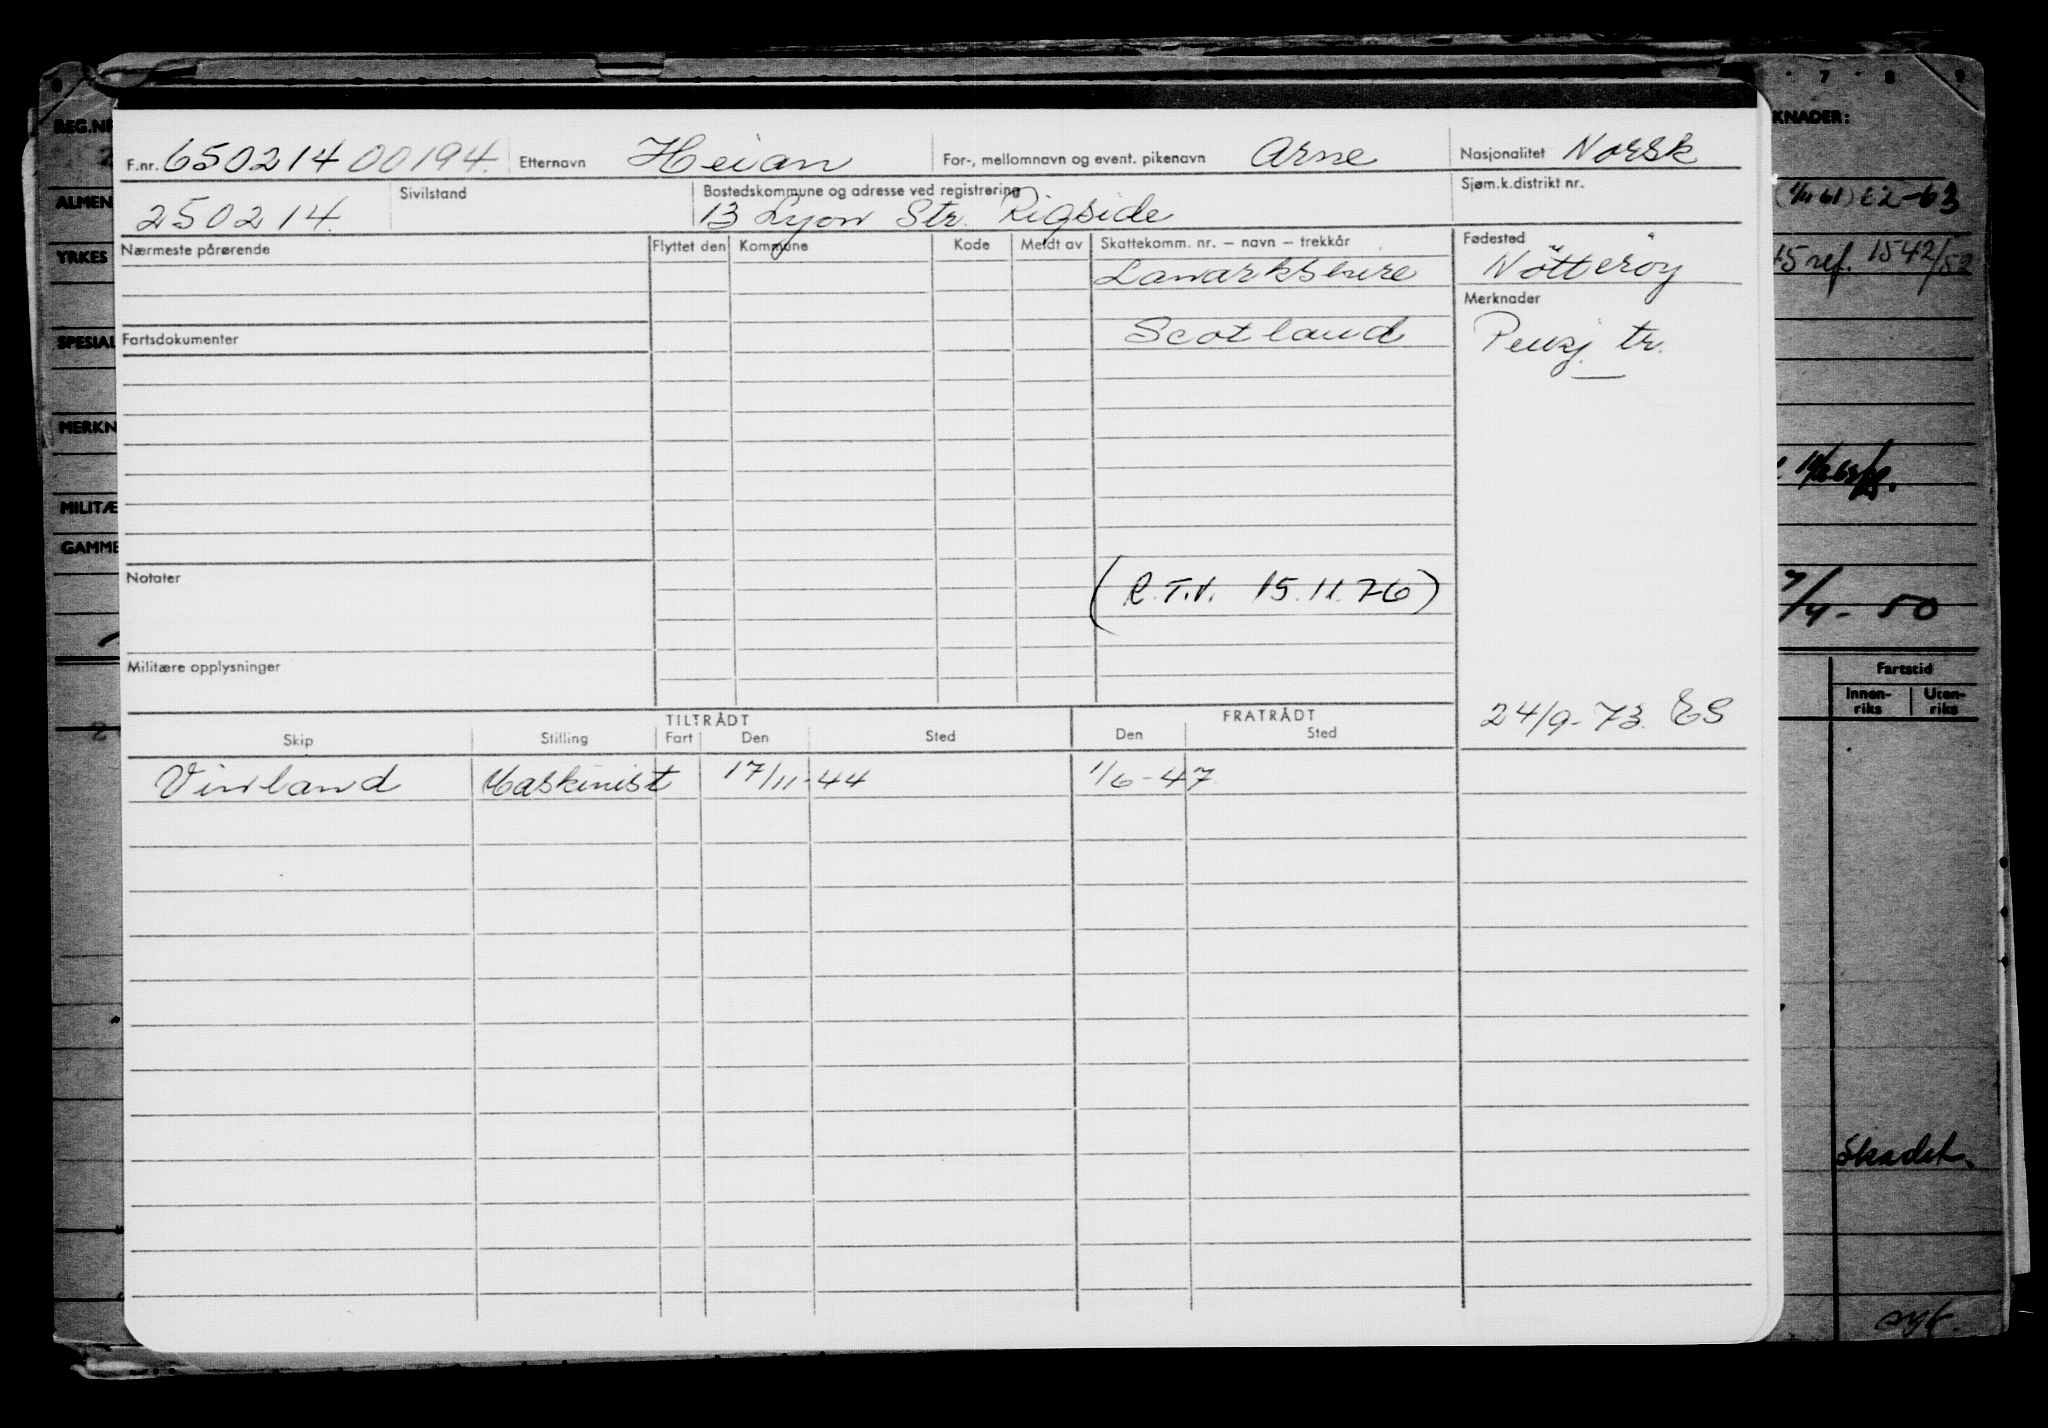 7 8 9
REG.NR
KNADER:
F.nr. 650214 00194. Etternavn Heian For-, mellomnavn og event. pikenavn Arne Nasjonalitet Norsk
250214. Sivilstand Bostedskommune og adresse ved registrering 13 Lyon Str. Rigside Sjøm.k.distrikt nr.
ALMEN
(1/11 61) E2-63
Nærmeste pårørende Flyttet den Kommune Kode Meldt av Skattekomm. nr. – navn – trekkår Fødested
YRKES
Lanarkshire Nötteröy
45 ref. 1542/52
Merknader
Fartsdokumenter Scotland Pensj. tr.
SPESIAL
MERKN
MILITÆ
GAMME
Notater
(R.T.V. 15.11.76)
7/4- 50
Militære opplysninger
Fartstid
Innen-riks Uten-riks
24/9-73. ES
TILTRÅDT FRATRÅDT
Skip Stilling Fart Den Sted Den Sted
Vinland Maskinist 17/11-44 1/6-47
Skadet.
syk.